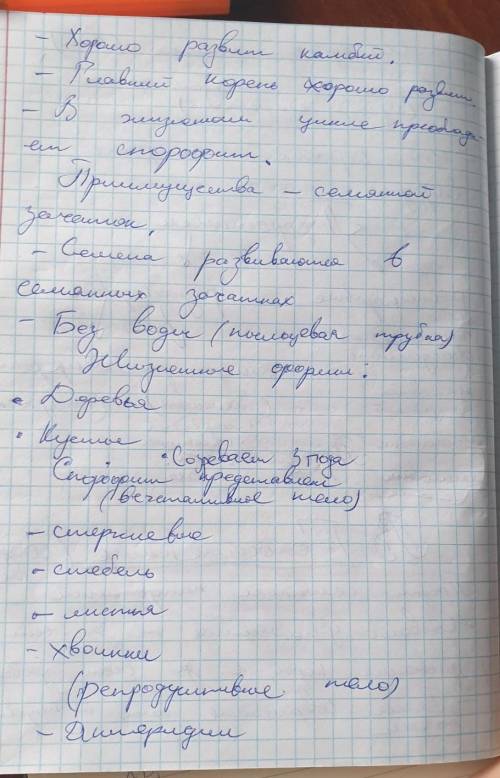 - Хорошо развит камбий.
- Главный корень хорошо развит
- В жизненом цикле преоблада-
ет спорофит.
Приимущества - семянной
зачаток.
- Семена развиваются в
семянных зачатках
- Без воды (пыльцевая трубка)
Жизненные формы:
• Деревья
• Кустые
• Созревает 3 года
Спорофит представлен
(вегетативное тело)
- стержневые
- стебель
- листья
- хвоинки
(репродуктивные тело)
- Антеридии